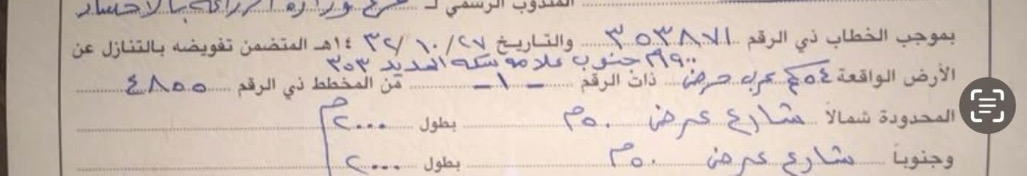 المندوب الرسمي لـ فرع وزارة الزراعة بالاحساء
بموجب الخطاب ذي الرقم ٣٥٣٨٧١ والتاريخ ٢٧ / ١٠ / ٣٢ ١٤هـ المتضمن تفويضه بالتنازل عن
٩٠٠م جنوب علامة سكة الحديد ٣٥٣
الأرض الواقعة ٥٤كم غرب حرض ذات الرقم - ١ - من المخطط ذي الرقم ٤٨٥٥
المحدودة شمالاً شارع عرض ٥٠م بطول ٢٠٠٠م
وجنوباً شارع عرض ٥٠م بطول ٢٠٠٠م